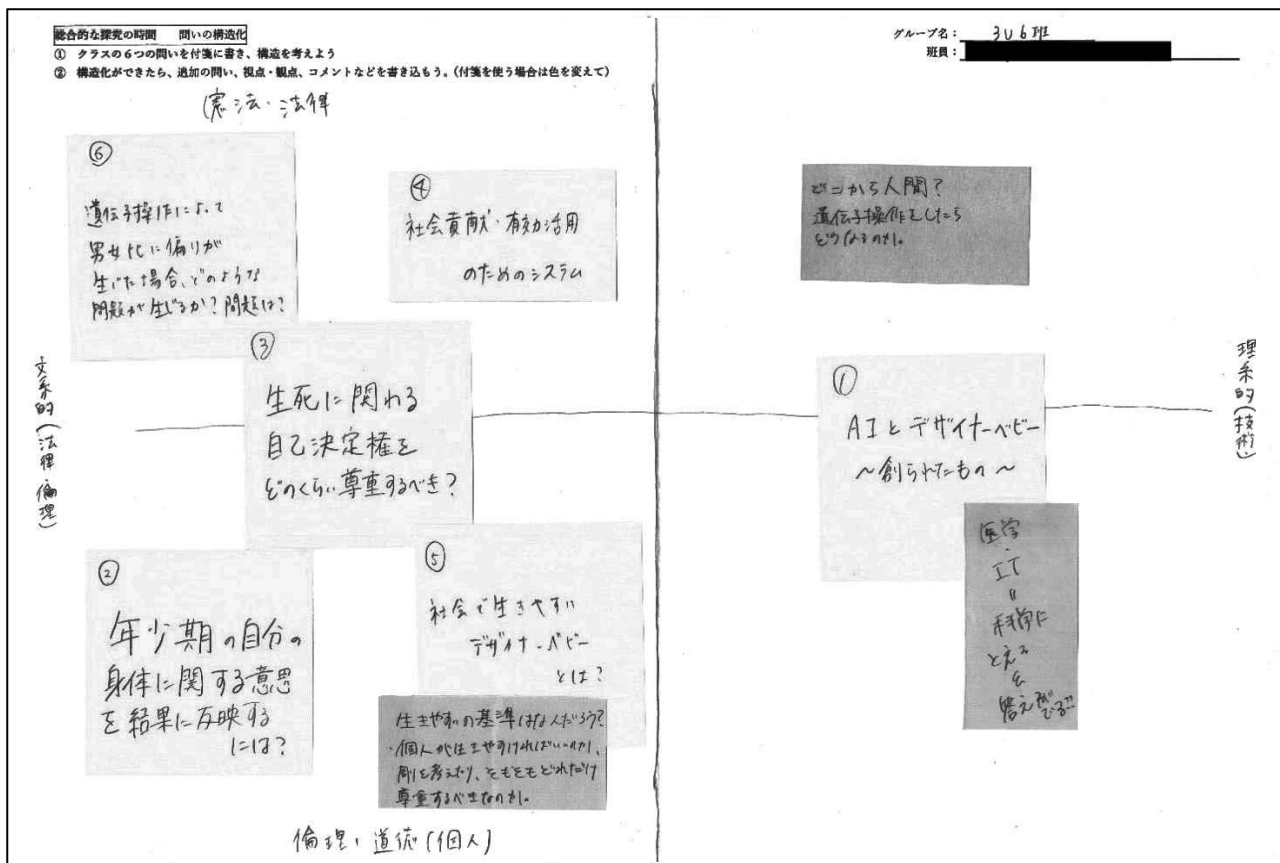 総合的な探究の時間　　問いの構造化
① クラスの6つの問いを付箋に書き、構造を考えよう
② 構造化ができたら、追加の問い、視点・観点、コメントなどを書き込もう。（付箋を使う場合は色を変えて）
グループ名：　3U6班
班員：
憲法・法律
⑥
遺伝子操作によって
男女比に偏りが
生じた場合、どのような
問題が生じるか？問題は？
④
社会貢献・有効活用
のためのシステム
どこから人間？
遺伝子操作をしたら
どうなるのか。
文系的（法律・倫理）
③
生死に関わる
自己決定権を
どのくらい尊重するべき？
①
AIとデザイナーベビー
～創られたもの～
理系的（技術）
②
年少期の自分の
身体に関する意思
を結果に反映する
には？
⑤
社会で生きやすい
デザイナーベビー
とは？
生きやすいの基準はなんだろう？
・個人が生きやすければいいのか、
を考えたり、そもそもどれだけ
尊重するべきなのか。
医学・
IT
〃
科学に
とえる
を
答えがでる!!
倫理・道徳（個人）